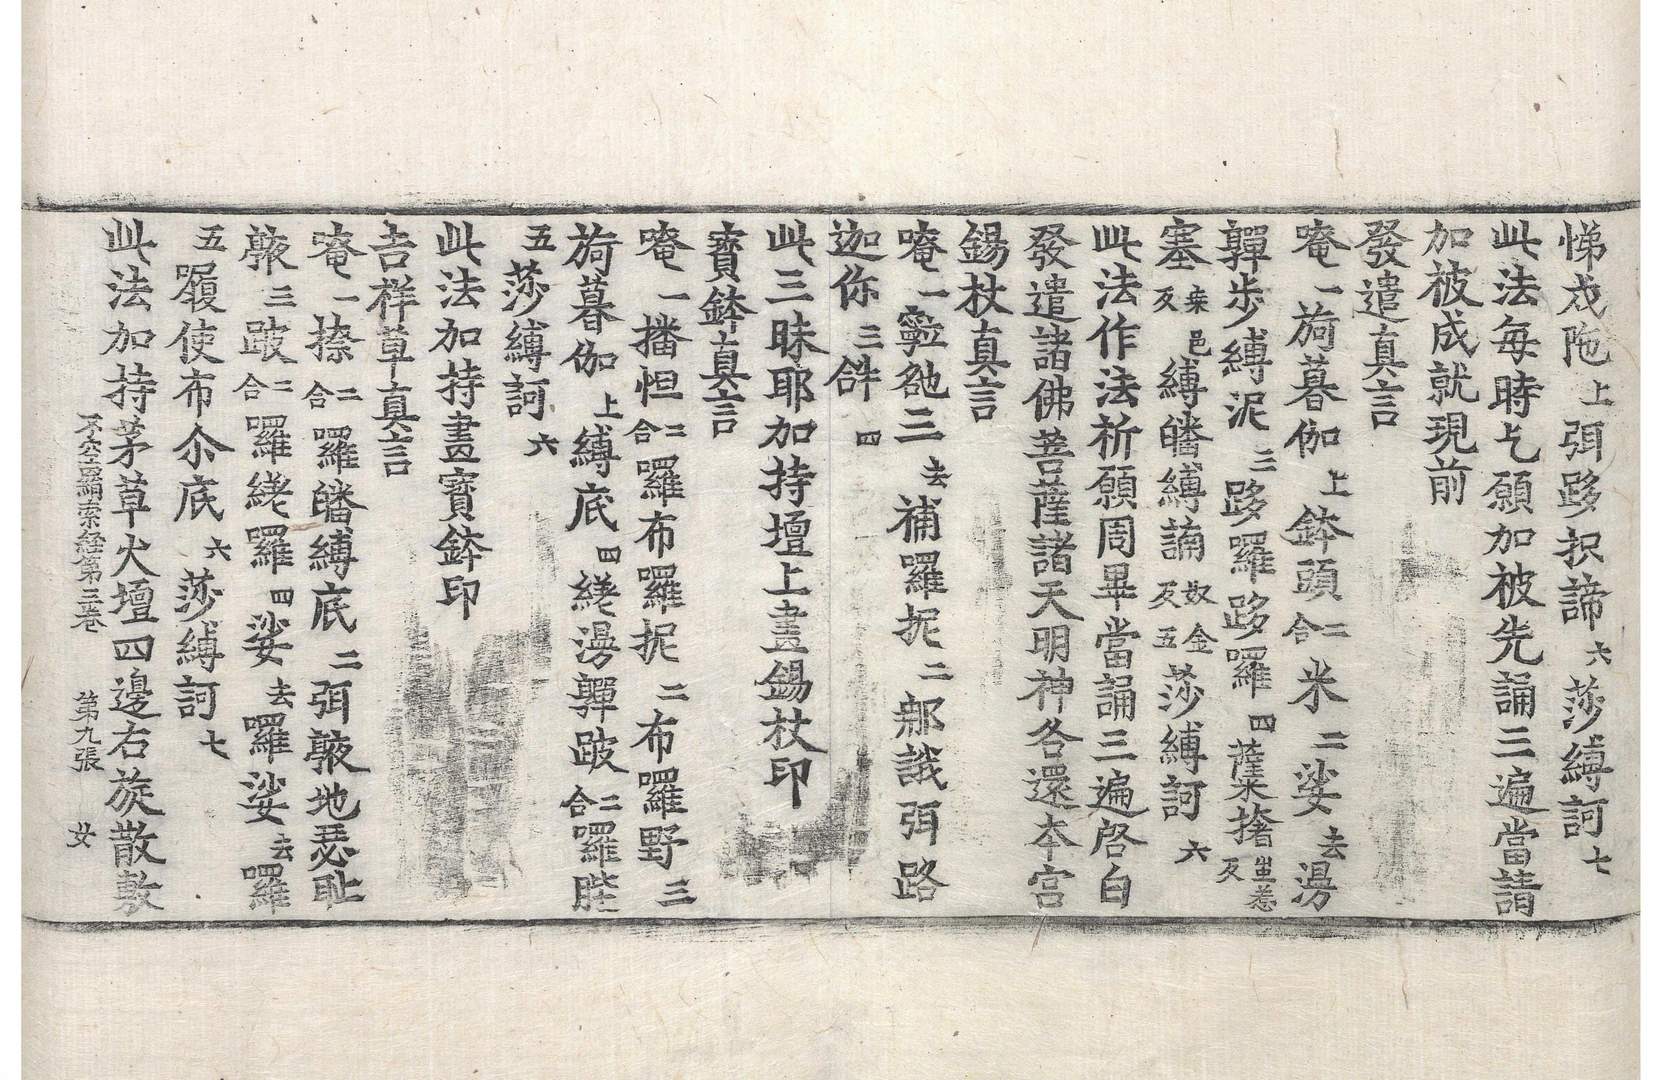 悌戍陁上弭跢抧諦六莎縛訶七
此法每時乞願加被先誦三遍當請
加被成就現前
發遣真言
唵一旖暮伽上鉢頭二合米二娑去漫
亸步縛泥三跢羅跢羅四薩㨋揸生惹反
塞桒邑反縛皤縛誦奴金反五莎縛訶六
此法作法祈願周畢當誦三遍啓白
發遣諸佛菩薩諸天明神各還本宮
錫杖真言
唵一寧𧙃三去補羅抳二郝誐弭路
迦你三𤙖四
此三昧耶加持壇上畫錫杖印
寶鉢真言
唵一播怛二合羅布羅抳二布羅野三
旖暮伽上縛底四繞漫亸跛二合羅䏶
五莎縛訶六
此法加持畫寶鉢印
吉祥草真言
唵一捺二合羅皤縛底二弭䏶地瑟耻
䏶三跛二合羅繞羅四娑去羅娑去羅
五履使布尒底六莎縛訶七
此法加持茅草火壇四邊右旋散敷
不空羂索経第三卷　第九張　女